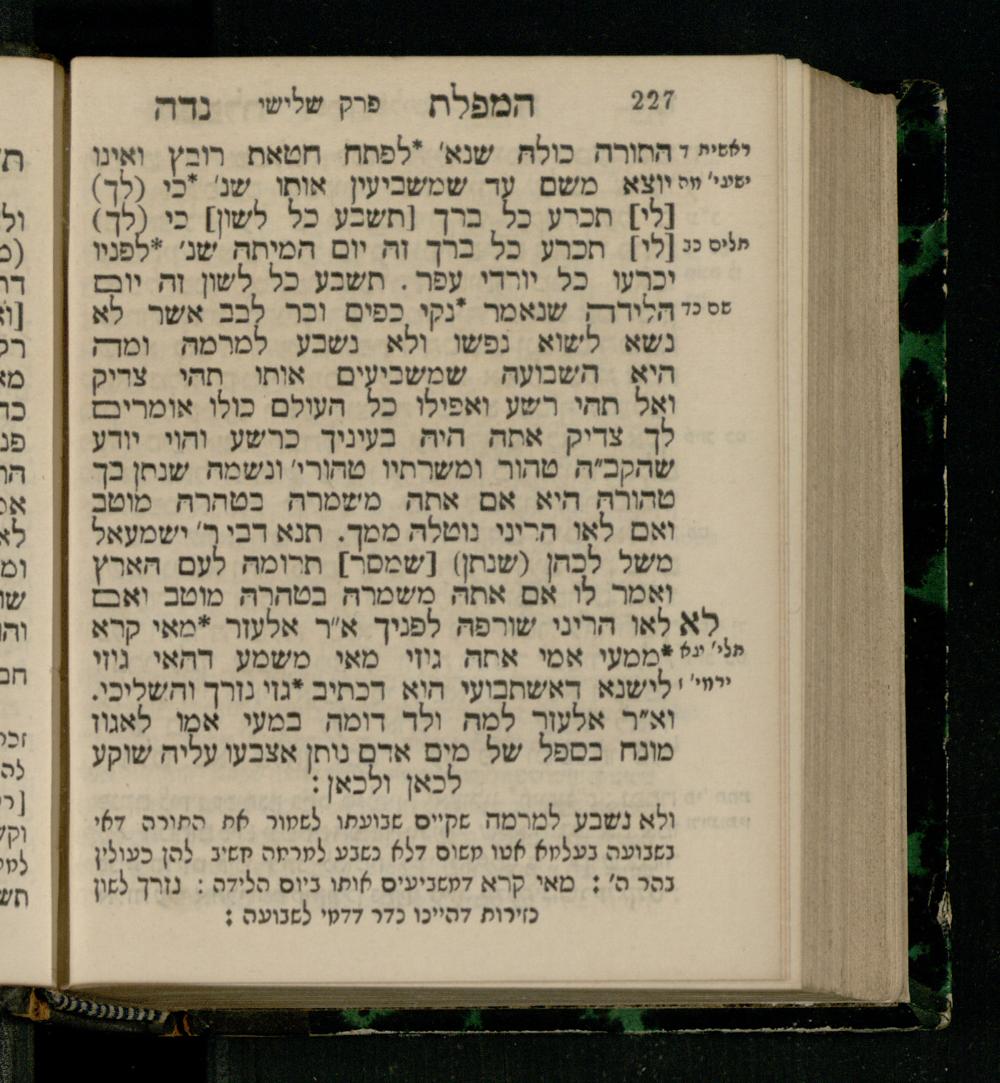 227 המפלת פרק שלישי נדה
ראשית ד התורה כולה שנא׳ *לפתח חטאת רובץ ואינו
ישעי׳ מה יוצא משם עד שמשביעין אותו שנ׳ *כי (לך)
[לי] תכרע כל ברך [תשבע כל לשון] כי (לך)
תלים כב [לי] תכרע כל ברך זה יום המיתה שנ׳ *לפניו
יכרעו כל יורדי עפר. תשבע כל לשון זה יום
שם כד הלידה שנאמר *נקי כפים ובר לבב אשר לא
נשא לשוא נפשו ולא נשבע למרמה ומה
היא השבועה שמשביעים אותו תהי צדיק
ואל תהי רשע ואפילו כל העולם כולו אומרים
לך צדיק אתה היה בעיניך כרשע והוי יודע
שהקב״ה טהור ומשרתיו טהורי׳ ונשמה שנתן בך
טהורה היא אם אתה משמרה בטהרה מוטב
ואם לאו הריני נוטלה ממך. תנא דבי ר׳ ישמעאל
משל לכהן (שנתן) [שמסר] תרומה לעם הארץ
ואמר לו אם אתה משמרה בטהרה מוטב ואם
לא לאו הריני שורפה לפניך א״ר אלעזר *מאי קרא
תלי׳ ינא *ממעי אמי אתה גוזי מאי משמע דהאי גוזי
ירמי׳ ז לישנא דאשתבועי הוא דכתיב *גזי נזרך והשליכי.
וא״ר אלעזר למה ולד דומה במעי אמו לאגוז
מונח בספל של מים אדם נותן אצבעו עליה שוקע
לכאן ולכאן:
ולא נשבע למרמה שקיים שבועתו לשמור את התורה דאי
בשבועה בעלמא אטו משום דלא נשבע למרמה חשיב להן כעולין
בהר ה׳: מאי קרא דמשביעים אותו ביום הלידה: נזרך לשון
נזירות דהיינו נדר דדמי לשבועה: